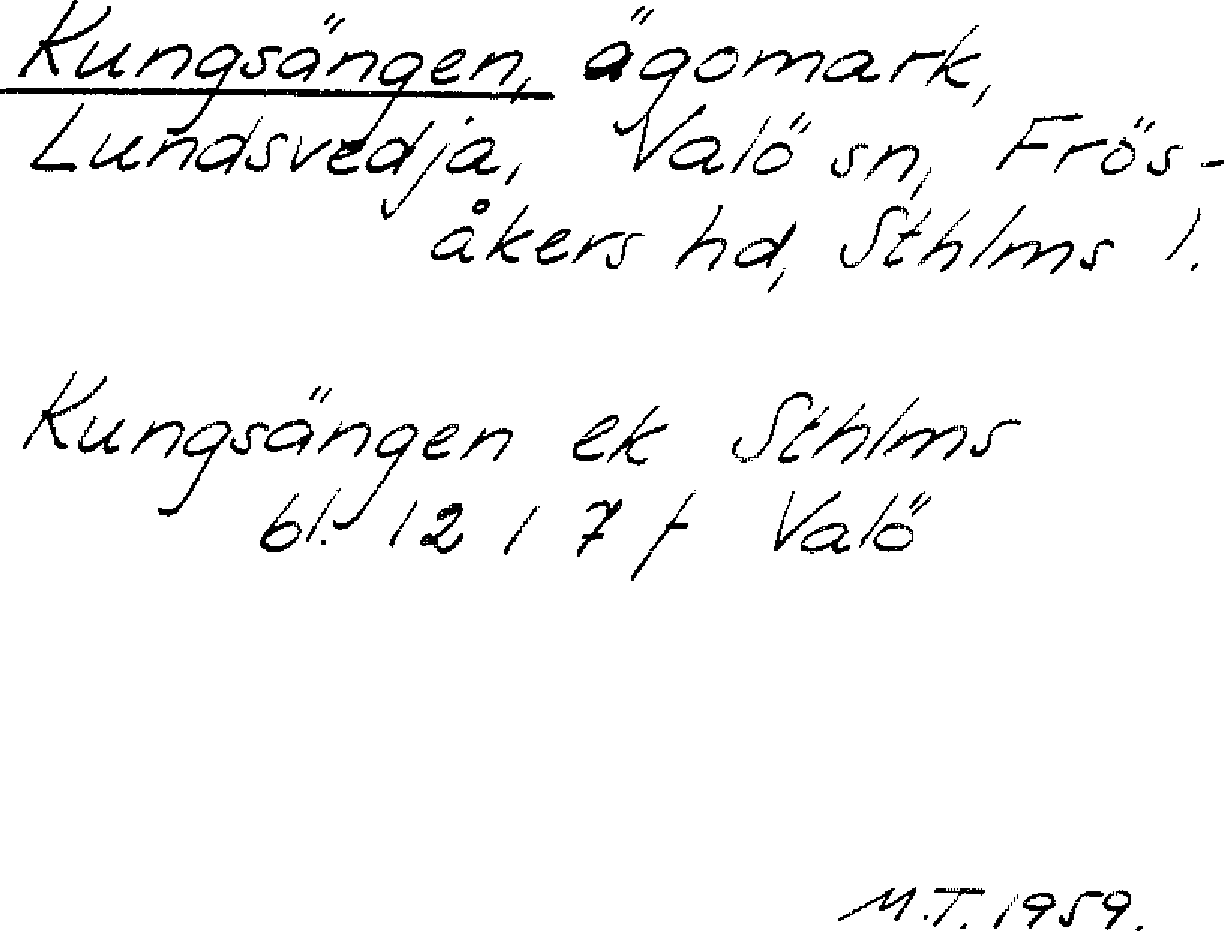 Kungsängen, ägomark,
Lundsvedja, Valö sn, Frös-
åkers hd, Sthlms l.
Kungsängen ek Sthlms
bl. 12 1 7 f Valö
M.T. 1959.